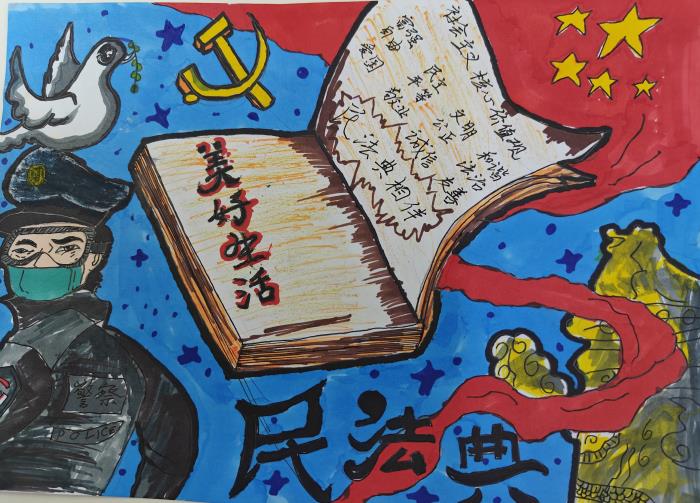 社会主义核心价值观
富强 民主 文明 和谐
自由 平等 公正 法治
爱国 敬业 诚信 友善
民法典相伴
美好生活
民法典
警察
POLICE